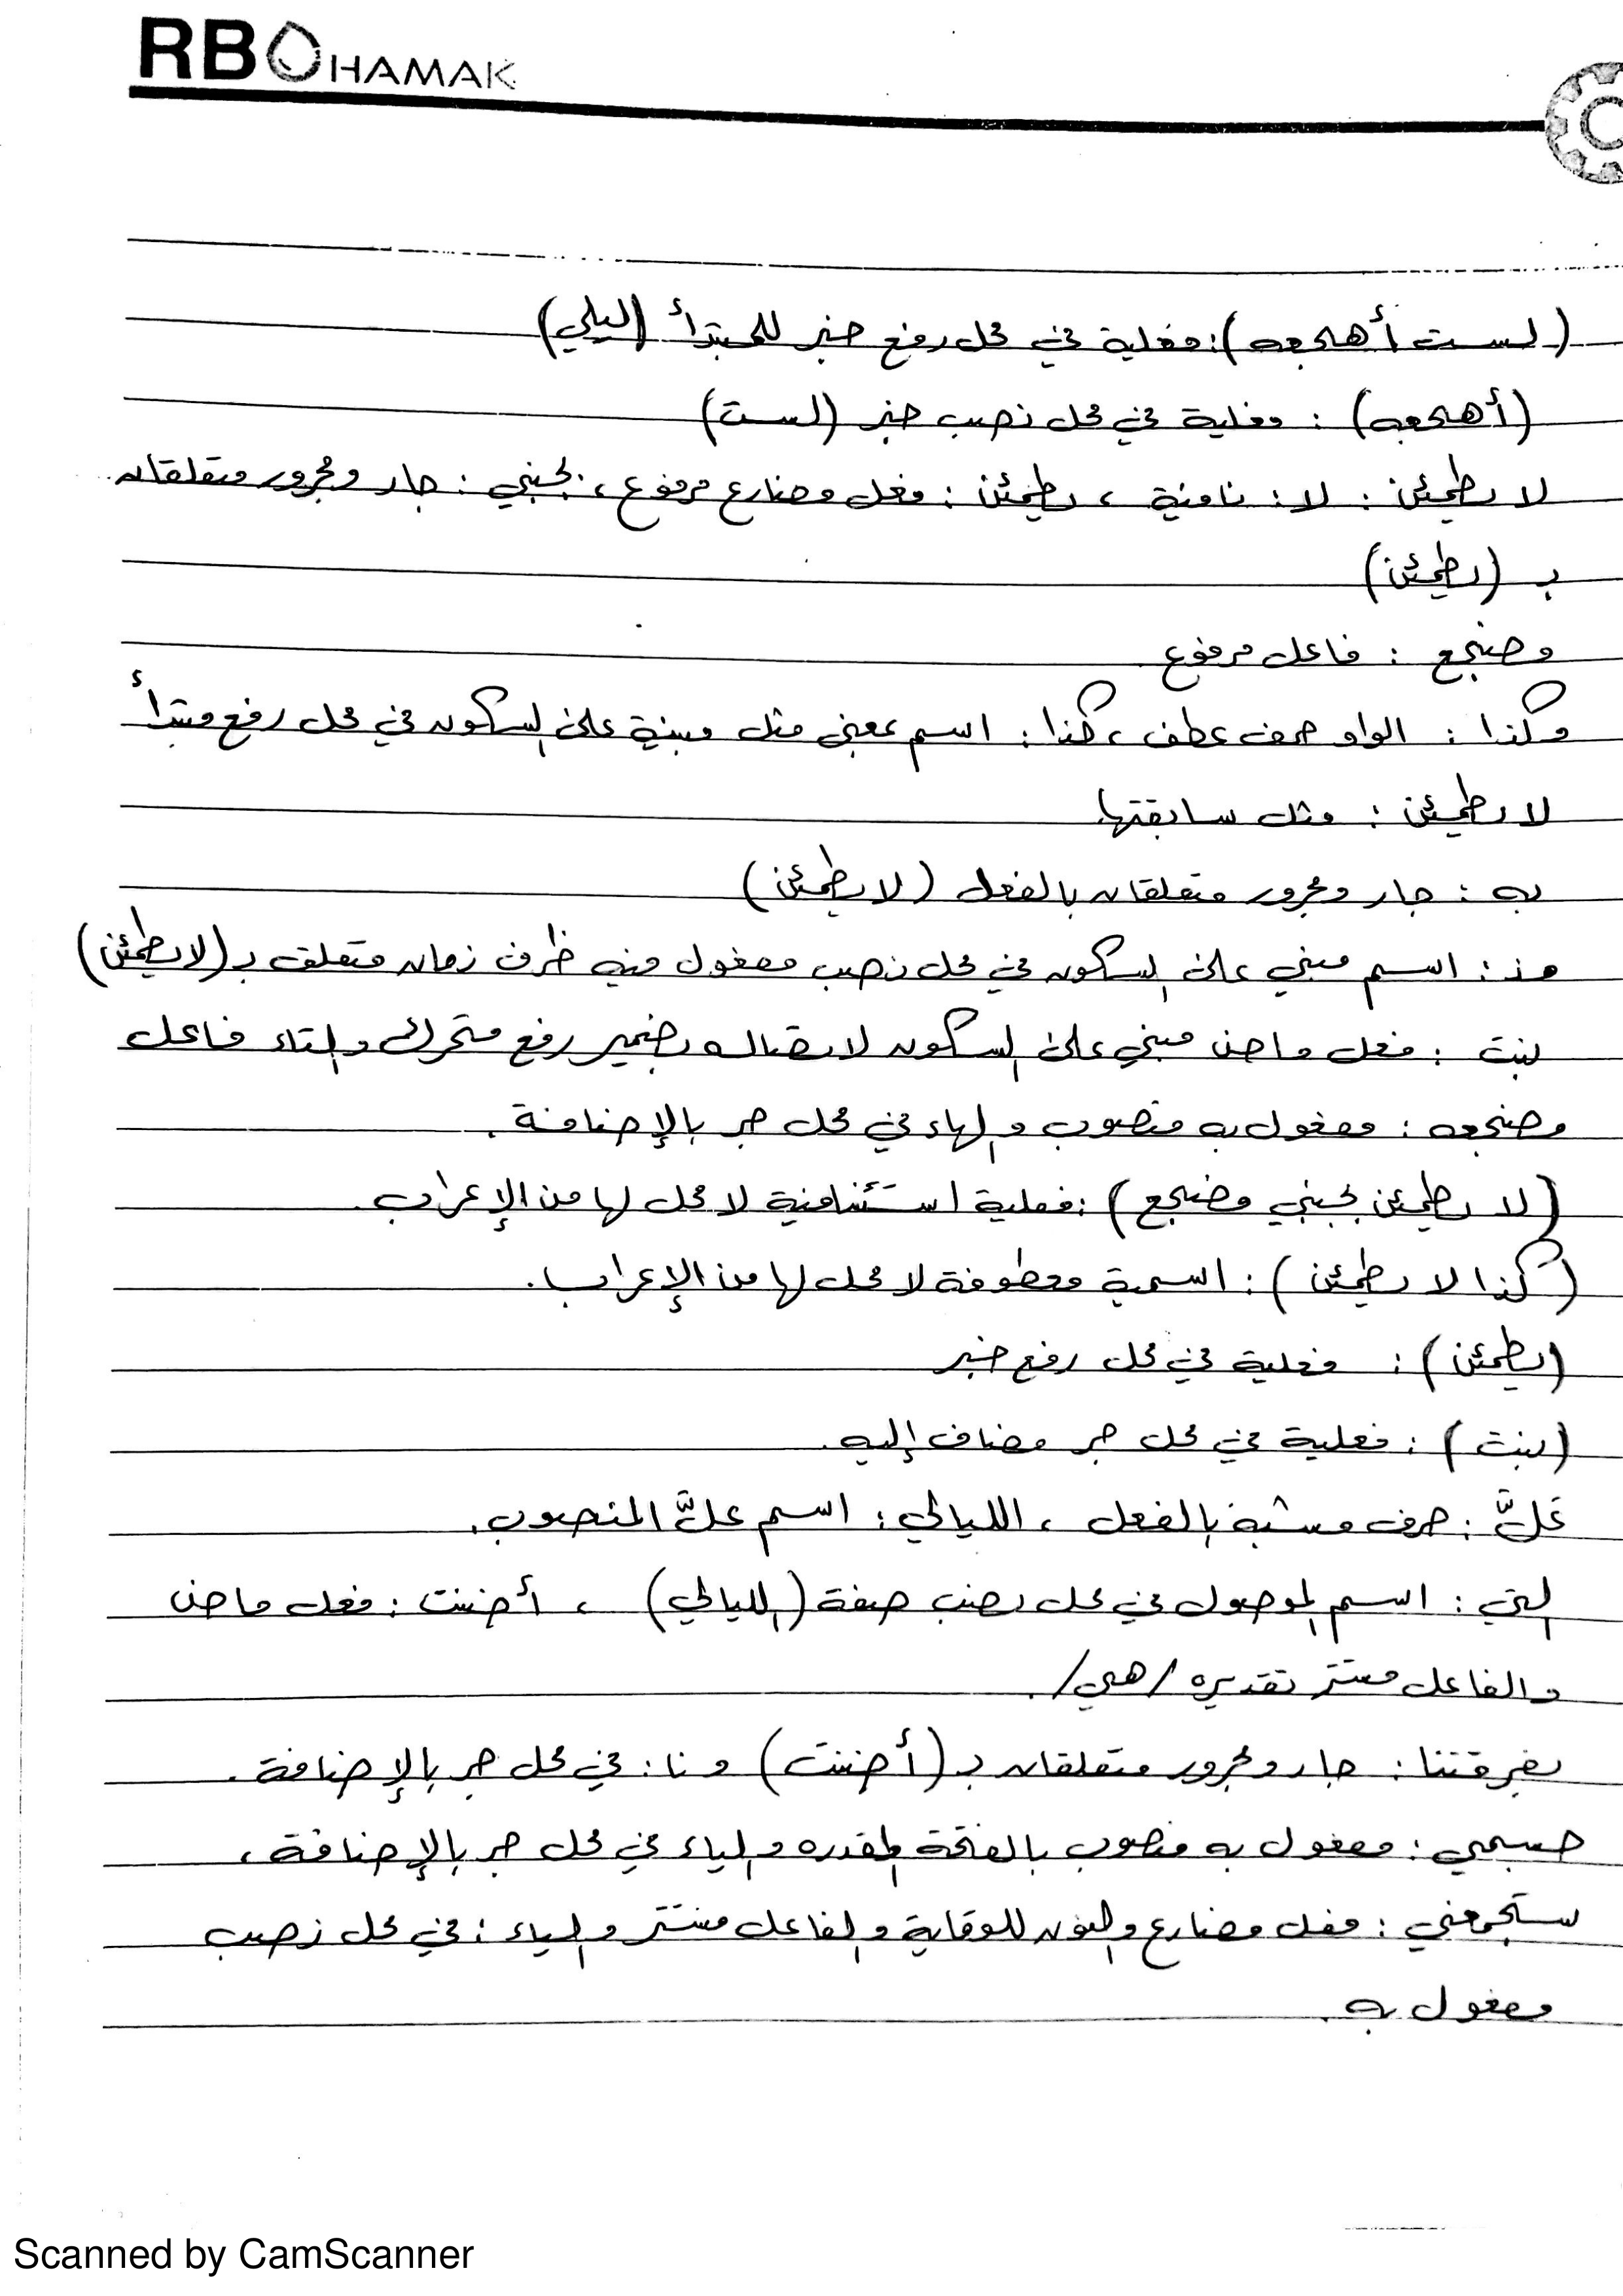 RB HAMAK
(لست أهجعه): فعلية في محل رفع خبر للمبتدأ (ليلي)
(أهجعه) : فعلية في محل نصب خبر (لست)
لا يطمئن : لا : نافية ، يطمئن : فعل مضارع مرفوع ، بجنبي : جار ومجرور متعلقان
بـ (يطمئن)
مضجع : فاعل مرفوع
وكذا : الواو حرف عطف ، كذا : اسم بمعنى مثل مبنية على السكون في محل رفع مبتدأ
لا يطمئن : مثل سابقتها
به : جار ومجرور متعلقان بالفعل (لا يطمئن)
مذ : اسم مبني على السكون في محل نصب مفعول فيه ظرف زمان متعلق بـ (لا يطمئن)
بنت : فعل ماض مبني على السكون لاتصاله بضمير رفع متحرك والتاء فاعل
مضجعه : مفعول به منصوب والهاء في محل جر بالإضافة .
(لا يطمئن بجنبي مضجع) : فعلية استئنافية لا محل لها من الإعراب .
(كذا لا يطمئن) : اسمية معطوفة لا محل لها من الإعراب .
(يطمئن) : فعلية في محل رفع خبر
(بنت) : فعلية في محل جر مضاف إليه .
عَلَّ : حرف مشبه بالفعل ، الليالي : اسم علَّ المنصوب .
التي : اسم الموصول في محل نصب صفة (الليالي) ، أضنت : فعل ماض
والفاعل مستتر تقديره /هي/ .
بفرقتنا : جار ومجرور متعلقان بـ (أضنت) و نا : في محل جر بالإضافة .
جسمي : مفعول به منصوب بالفتحة المقدره والياء في محل جر بالإضافة ،
ستجمعني : فعل مضارع والنون للوقاية والفاعل مستتر والياء : في محل نصب
مفعول به .
Scanned by CamScanner